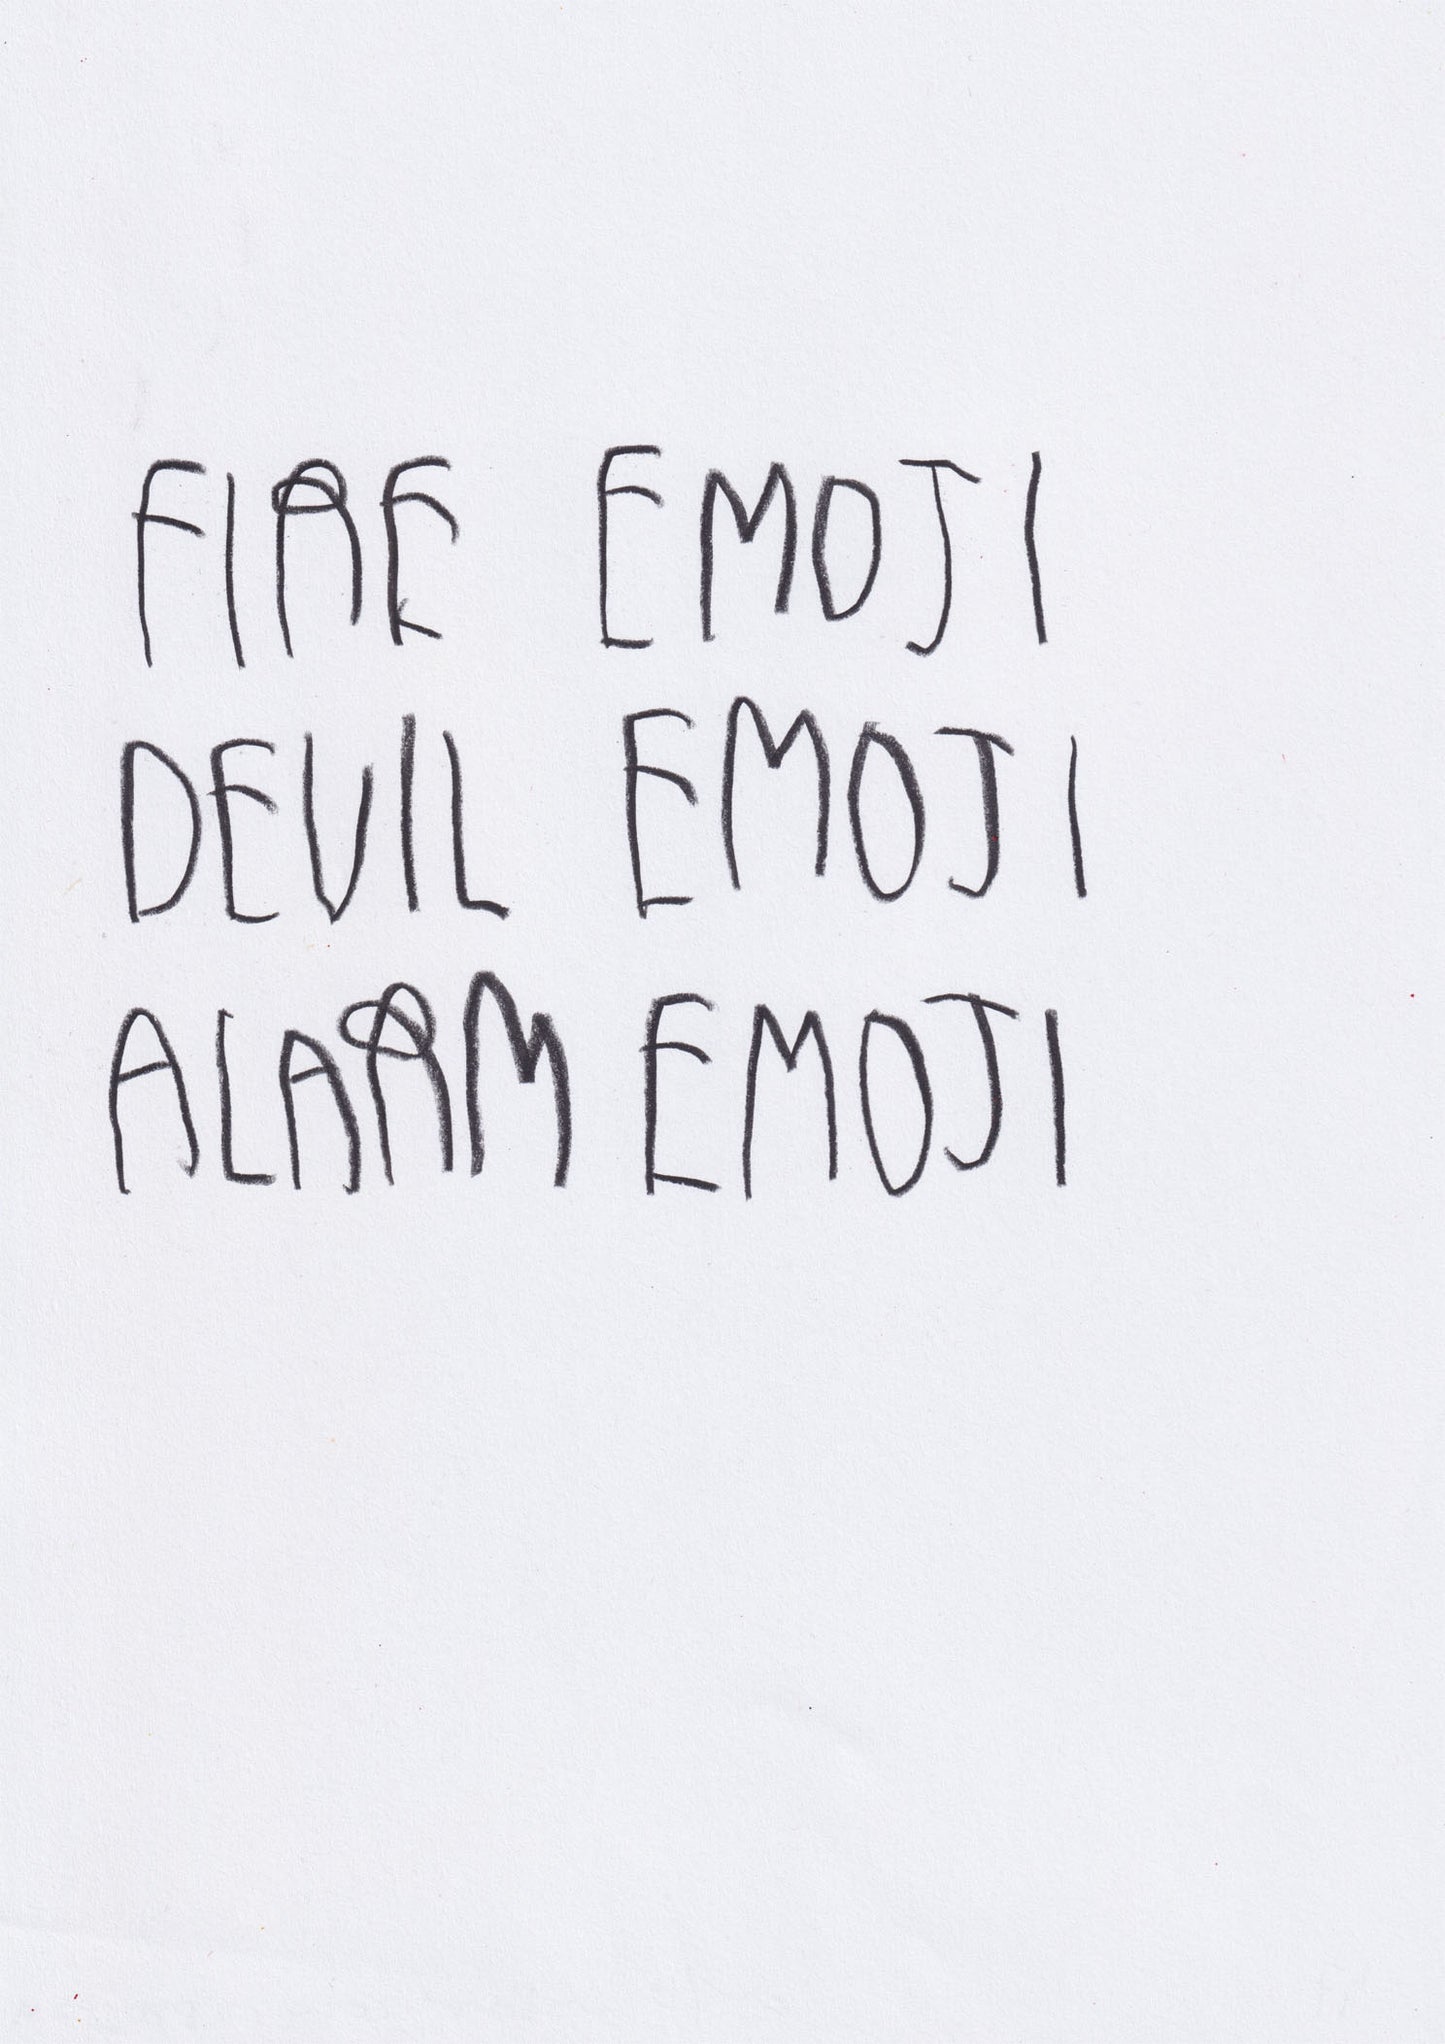 FIRE EMOJI
DEVIL EMOJI
ALARM EMOJI